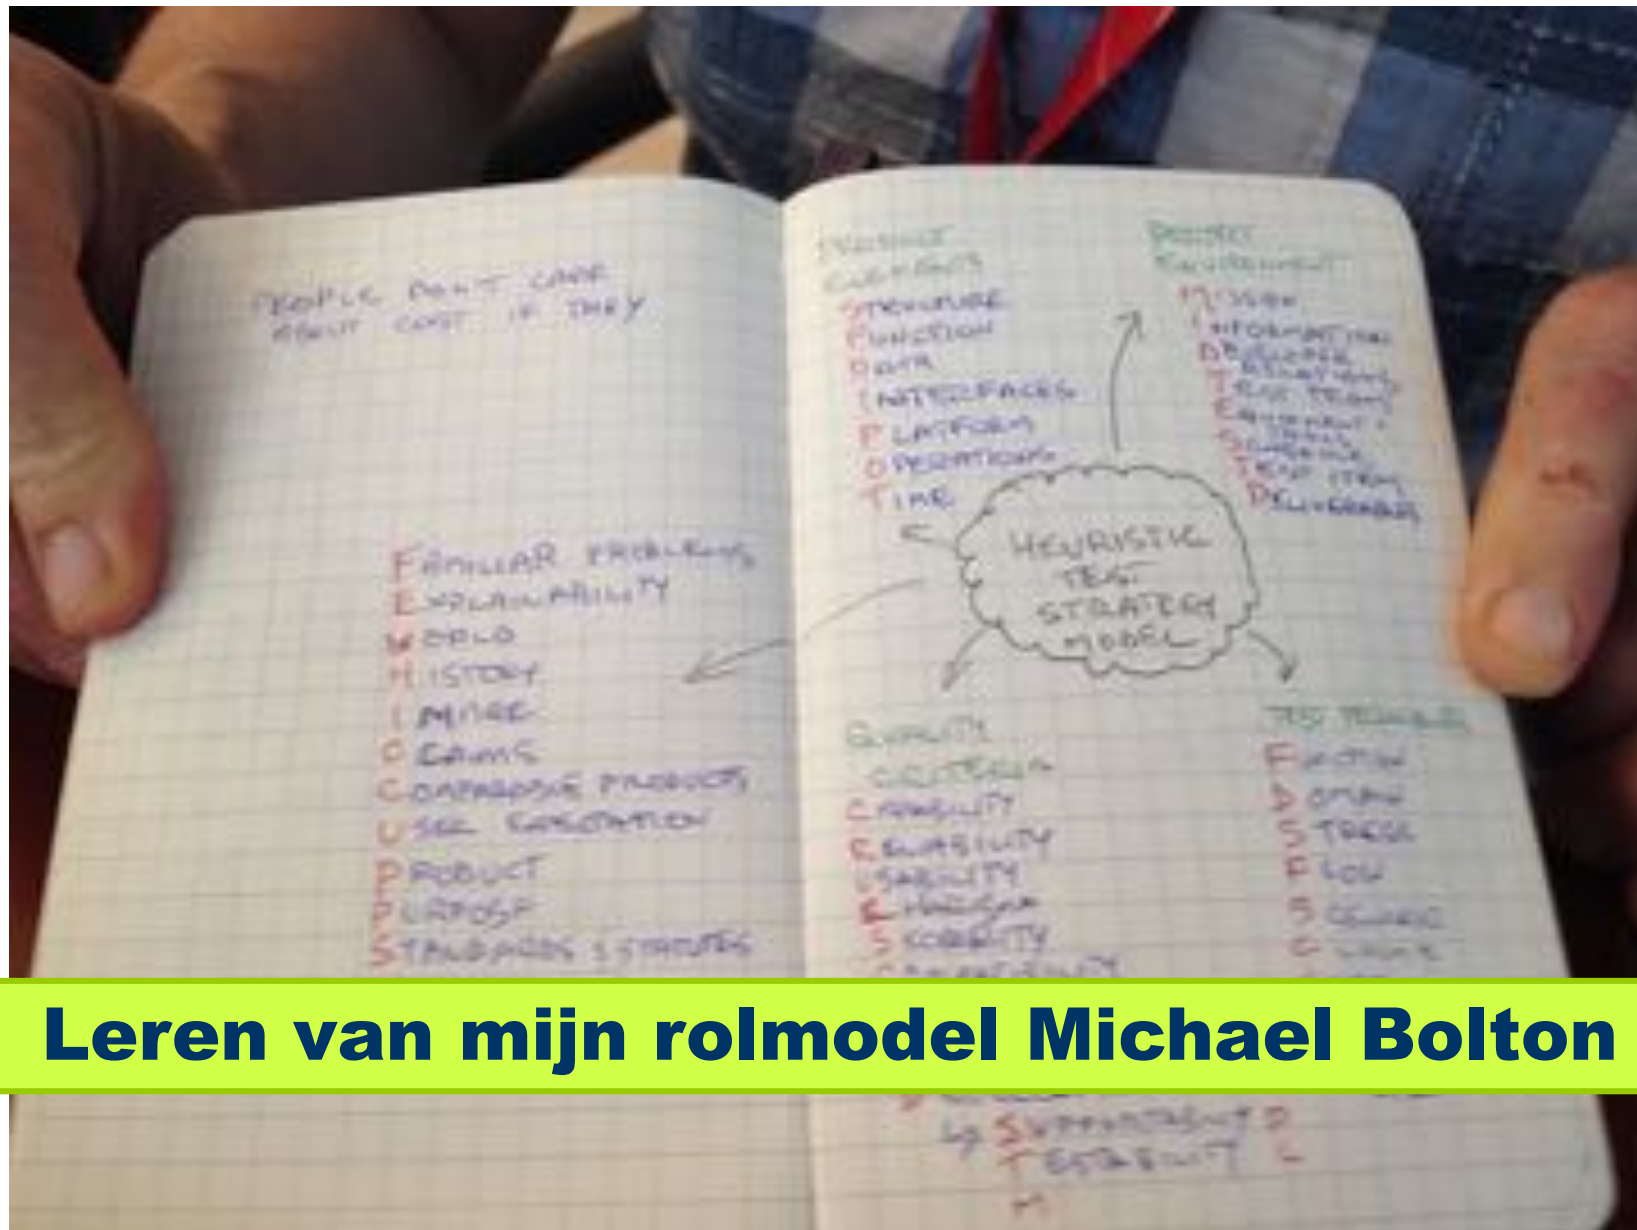 PEOPLE DON'T CARE
ABOUT COST IF THEY
FAMILIAR PROBLEMS
EXPLAINABILITY
WORLD
HISTORY
IMAGE
CLAIMS
COMPARABLE PRODUCTS
USER EXPECTATION
PRODUCT
PURPOSE
STANDARDS & STATUTES
PRODUCT
ELEMENTS
STRUCTURE
FUNCTION
DATA
INTERFACES
PLATFORM
OPERATIONS
TIME
PROJECT
ENVIRONMENT
MISSION
INFORMATION
DEVELOPER
RELATIONS
TEST TEAM
EQUIPMENT &
TOOLS
SCHEDULE
TEST ITEMS
DELIVERABLES
HEURISTIC
TEST
STRATEGY
MODEL
QUALITY
CRITERIA
CAPABILITY
RELIABILITY
USABILITY
CHARISMA
SECURITY
COMPATIBILITY
TEST TECHNIQUES
FUNCTION
DOMAIN
STRESS
FLOW
SCENARIO
CLAIMS
Leren van mijn rolmodel Michael Bolton
SUPPORTABILITY
TESTABILITY
M